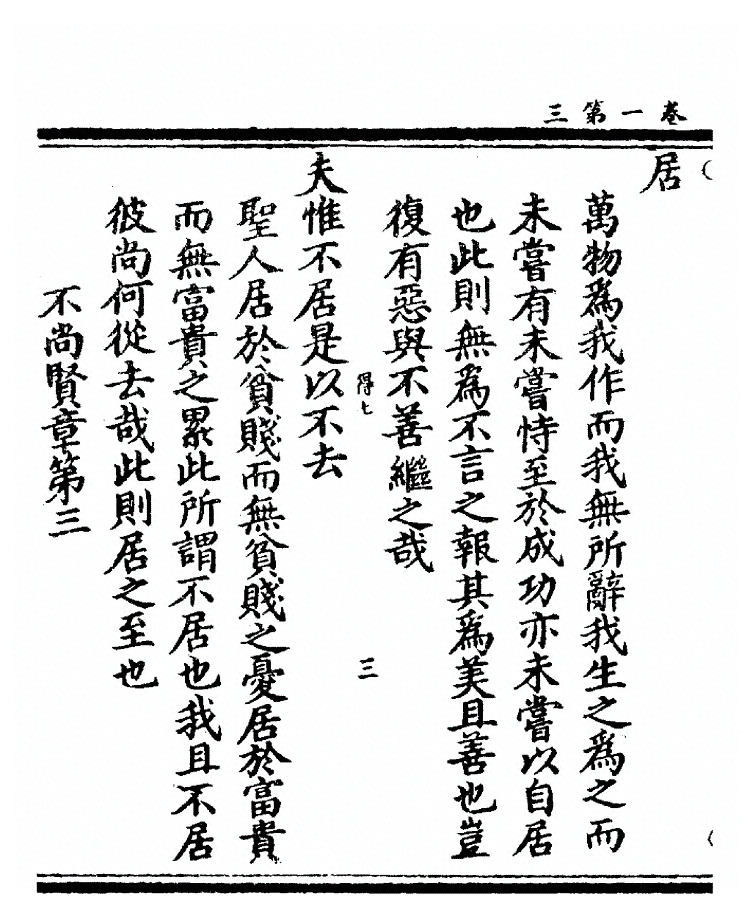 三第一卷
居
萬物爲我作而我無所辭我生之爲之而
未嘗有未嘗恃至於成功亦未嘗以自居
也此則無爲不言之報其爲美且善也豈
復有惡與不善繼之哉
得七
三
夫惟不居是以不去
聖人居於貧賤而無貧賤之憂居於富貴
而無富貴之累此所謂不居也我且不居
彼尚何從去哉此則居之至也
不尚賢章第三